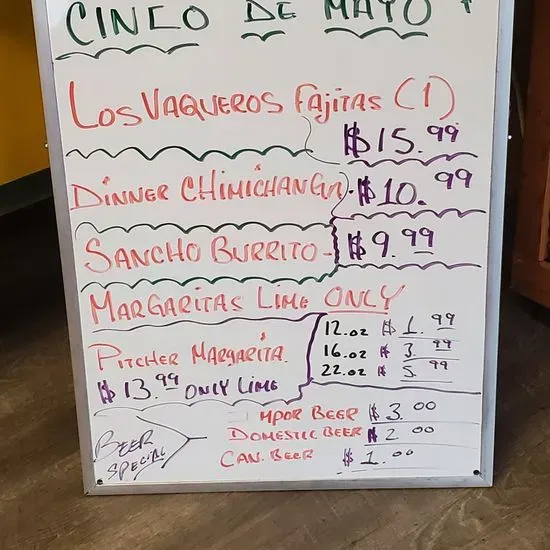 CINCO DE MAYO
LOS VAQUEROS FAJITAS (1)
$15.99
DINNER CHIMICHANGA - $10.99
SANCHO BURRITO - $9.99
MARGARITAS LIME ONLY
12.oz $1.99
16.oz $3.99
22.oz $5.99
PITCHER MARGARITA
$13.99 ONLY LIME
BEER
SPECIAL
MPOR BEER $3.00
DOMESTIC BEER $2.00
CAN. BEER $1.00